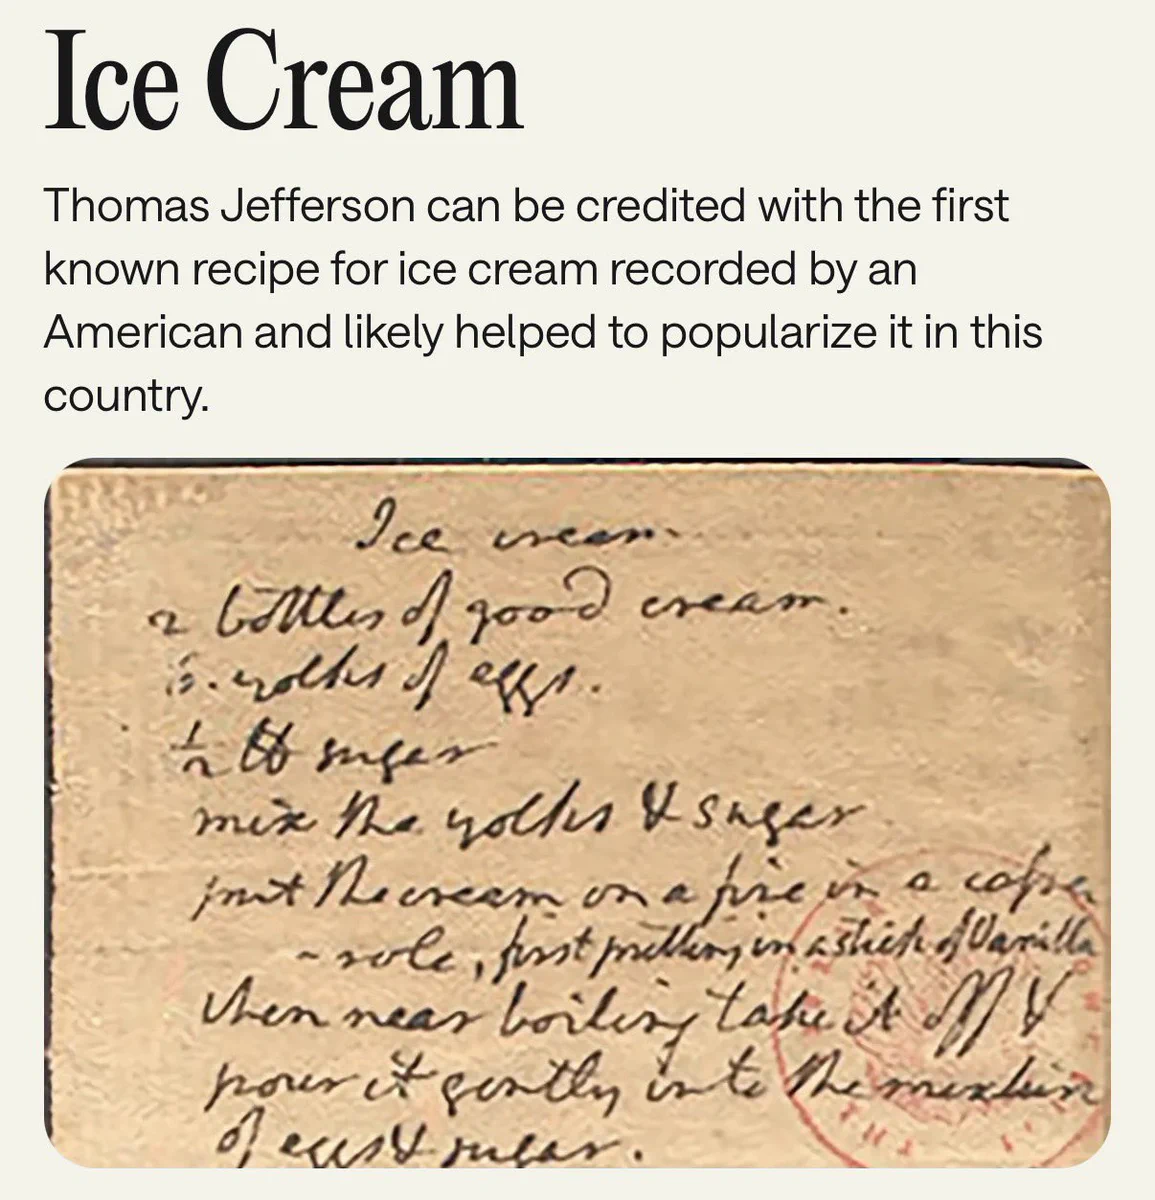 Ice Cream
Thomas Jefferson can be credited with the first
known recipe for ice cream recorded by an
American and likely helped to popularize it in this
country.
Ice cream.
2 bottles of good cream.
6. yolks of eggs.
1/2 lb sugar
mix the yolks & sugar
put the cream on a fire in a casse
- role, first putting in a stick of Vanilla
when near boiling take it off &
pour it gently into the mixture
of eggs & sugar.